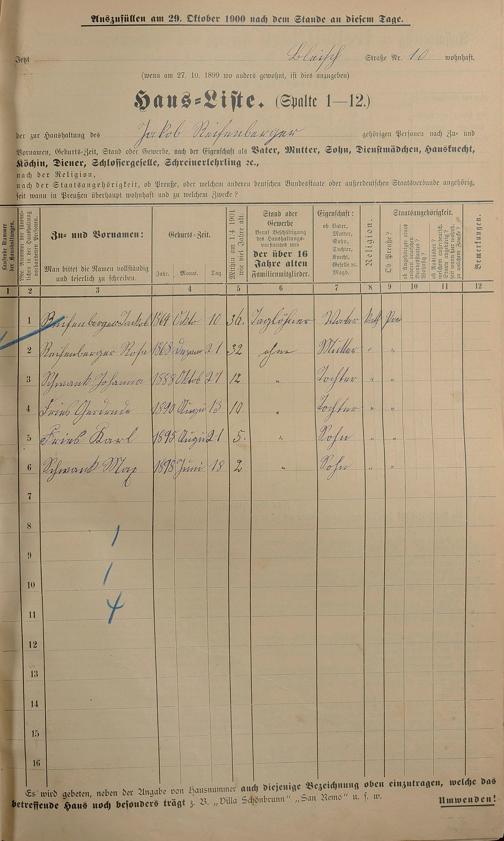 Auszufüllen am 29. Oktober 1900 nach dem Stande an diesem Tage.
Jetzt Bleich Straße Nr. 10 wohnhaft.
(wenn am 27. 10. 1899 wo anders gewohnt, ist dies anzugeben)
Haus-Liste. (Spalte 1—12.)
der zur Haushaltung des Jakob Reifenberger gehörigen Personen nach Zu- und
Vornamen, Geburts-Zeit, Stand oder Gewerbe, nach der Eigenschaft als Vater, Mutter, Sohn, Dienstmädchen, Hausknecht,
Köchin, Diener, Schlossergeselle, Schreinerlehrling ꝛc.,
nach der Religion,
nach der Staatsangehörigkeit, ob Preuße, oder welchem anderen deutschen Bundesstaate oder außerdeutschen Staatsverbande angehörig,
seit wann in Preußen überhaupt wohnhaft und zu welchem Zwecke?
Zu- und Vornamen:
Man bittet die Namen vollständig
und leserlich zu schreiben.
Geburts-Zeit.
Jahr. Monat. Tag.
Mithin am 1.4.1901
wie viel Jahre alt.
Stand oder
Gewerbe
der über 16
Jahre alten
Familienmitglieder.
Eigenschaft:
ob Vater,
Mutter,
Sohn,
Tochter,
Knecht,
Geselle ꝛc.
Magd.
Religion.
Staatsangehörigkeit.
Ob Preuße?
Bemerkungen.
1 2 3 4 5 6 7 8 9 10 11 12
1 Reifenberger Jakob 1864 Okto 10 36. Taglöhner Vater Kath Pre
2 Reifenberger Rosa 1868 Dezem 21 32 ohne Mutter " "
3 Schwank Johanna 1888 Oktob 27 12 " Tochter " "
4 Fries 1890 August 13 10 " Tochter " "
5 Fries Karl 1895 August 21 5. " Sohn " "
6 Schwank Max 1898 Juni 18 2 " Sohn " "
7
8 1
9
10 1
11 4
12
13
14
15
16
Es wird gebeten, neben der Angabe von Hausnummer auch diejenige Bezeichnung oben einzutragen, welche das
betreffende Haus noch besonders trägt z. B. „Villa Schönbrunn" „San Remo" u. s. w.
Umwenden!